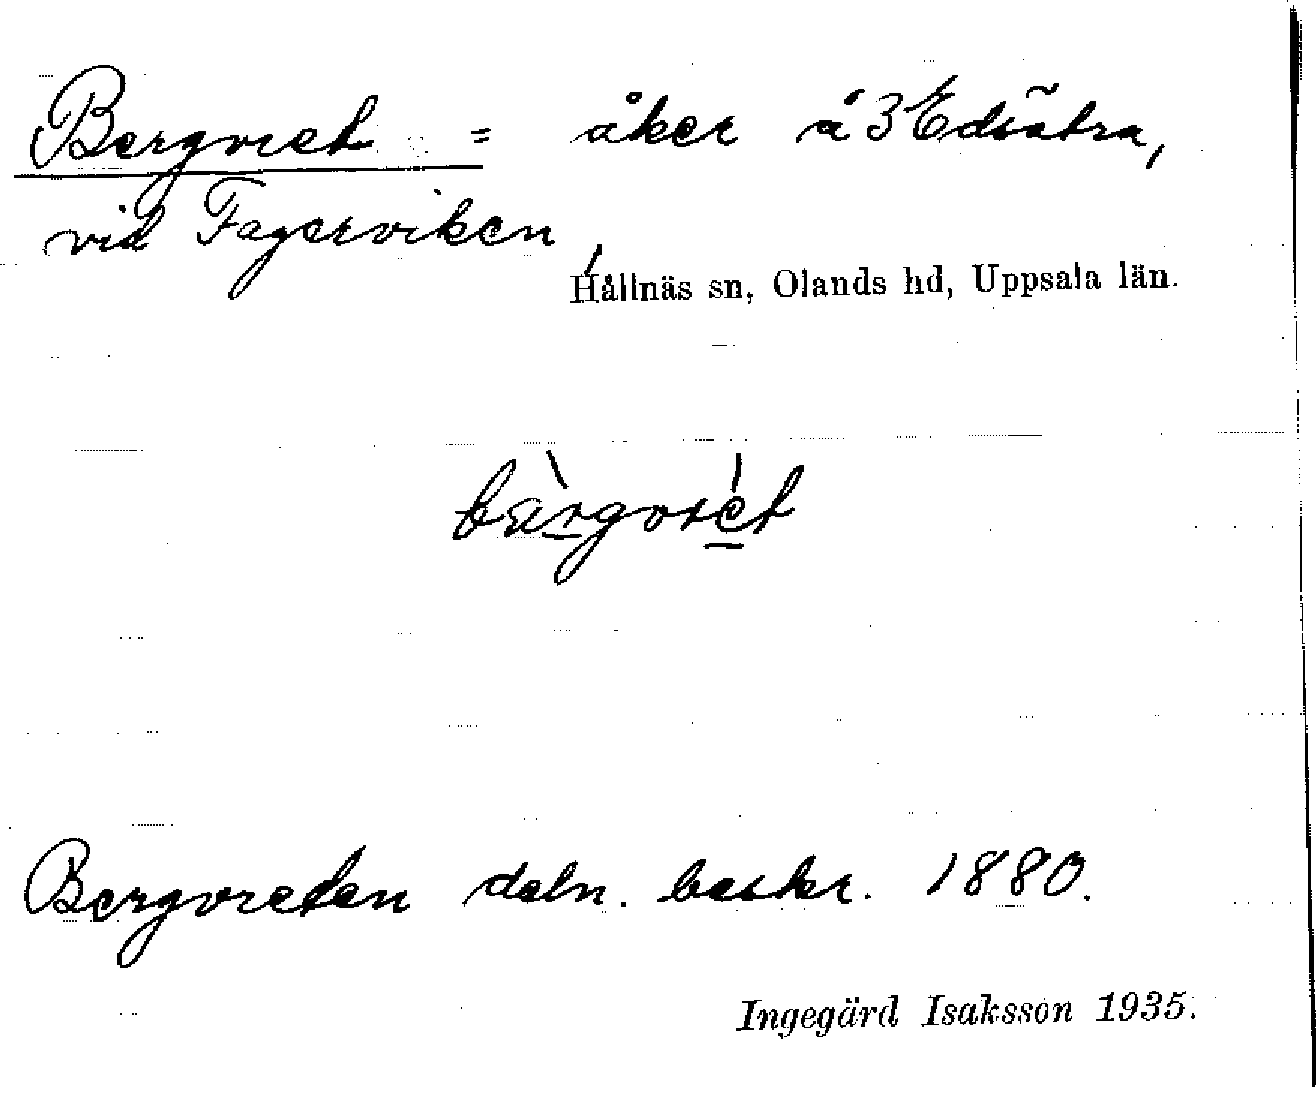 Bergvret = åker å 3 Edsätra,
vid Fagerviken,
Hållnäs sn, Olands hd, Uppsala län.
bàrgvrét
Bergvreten deln. beskr. 1880.
Ingegärd Isaksson 1935.